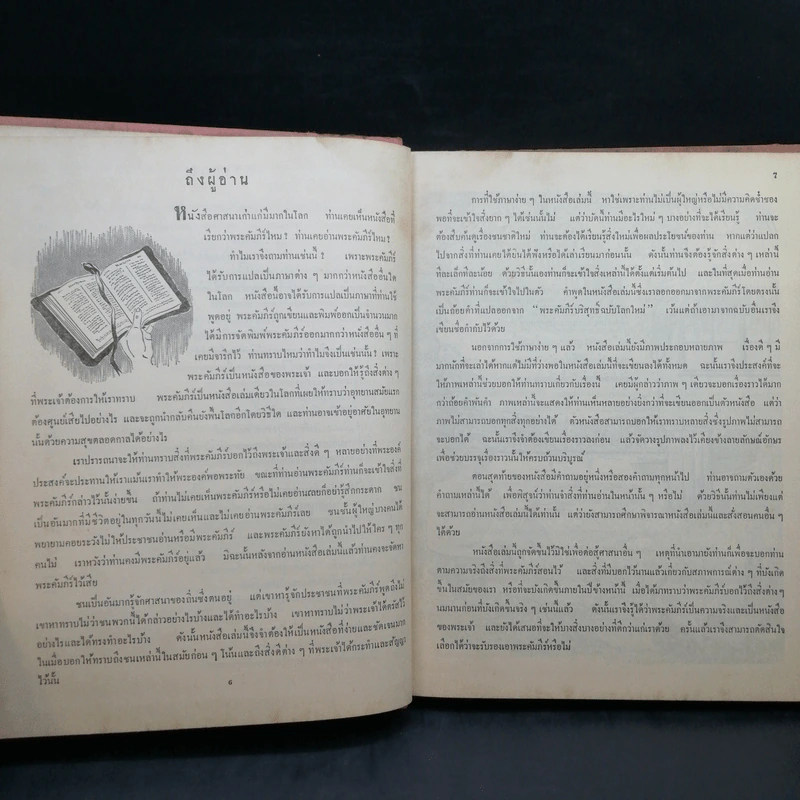 ถึงผู้อ่าน
หนังสือศาสนาเก่าแก่มีมากในโลก ท่านเคยเห็นหนังสือที่
เรียกว่าพระคัมภีร์ไหม? ท่านเคยอ่านพระคัมภีร์ไหม?
ทำไมเราจึงถามท่านเช่นนี้? เพราะพระคัมภีร์
ได้รับการแปลเป็นภาษาต่าง ๆ มากกว่าหนังสืออื่นใด
ในโลก หนังสือนี้อาจได้รับการแปลเป็นภาษาที่ท่านใช้
พูดอยู่ พระคัมภีร์ถูกเขียนและพิมพ์ออกเป็นจำนวนมาก
ได้มีการจัดพิมพ์พระคัมภีร์ออกมากกว่าหนังสืออื่น ๆ ที่
เคยมีจารึกไว้ ท่านทราบไหมว่าทำไมจึงเป็นเช่นนั้น? เพราะ
พระคัมภีร์เป็นหนังสือของพระเจ้า และบอกให้รู้ถึงสิ่งต่าง ๆ
ที่พระเจ้าต้องการให้เราทราบ พระคัมภีร์เป็นหนังสือเล่มเดียวในโลกที่เผยให้ทราบว่าอุทยานสมัยแรก
ต้องสูญเสียไปอย่างไร และจะถูกนำกลับคืนยังพื้นโลกอีกโดยวิธีใด และท่านอาจเข้าอยู่อาศัยในอุทยาน
นั้นด้วยความสุขตลอดกาลได้อย่างไร
เราปรารถนาจะให้ท่านทราบสิ่งที่พระคัมภีร์บอกไว้ถึงพระเจ้าและสิ่งดี ๆ หลายอย่างที่พระองค์
ประสงค์จะประทานให้เราแม้นเราทำให้พระองค์พอพระทัย ขณะที่ท่านอ่านพระคัมภีร์ท่านก็จะเข้าใจสิ่งที่
พระคัมภีร์กล่าวไว้นั้นง่ายขึ้น ถ้าท่านไม่เคยเห็นพระคัมภีร์หรือไม่เคยอ่านเลยก็อย่ารู้สึกกระดาก ชน
เป็นอันมากที่มีชีวิตอยู่ในทุกวันนี้ไม่เคยเห็นและไม่เคยอ่านพระคัมภีร์เลย ชนชั้นผู้ใหญ่บางคนได้
พยายามคอยระวังไม่ให้ประชาชนอ่านหรือมีพระคัมภีร์ และพระคัมภีร์ยังหาได้ถูกนำไปให้ใคร ๆ ทุก
คนไม่ เราหวังว่าท่านคงมีพระคัมภีร์อยู่แล้ว มิฉะนั้นหลังจากอ่านหนังสือเล่มนี้แล้วท่านคงจะจัดหา
พระคัมภีร์ไว้เสีย
ชนเป็นอันมากรู้จักศาสนาของถิ่นซึ่งตนอยู่ แต่เขาหารู้จักประชาชนที่พระคัมภีร์พูดถึงไม่
เขาหาทราบไม่ว่าชนพวกนี้ได้กล่าวอย่างไรบ้างและได้ทำอะไรบ้าง เขาหาทราบไม่ว่าพระเจ้าได้ตรัสไว้
อย่างไรและได้ทรงทำอะไรบ้าง ดังนั้นหนังสือเล่มนี้จึงจำต้องให้เป็นหนังสือที่ง่ายและชัดเจนมาก
ในเมื่อบอกให้ทราบถึงชนเหล่านี้ในสมัยก่อน ๆ โน้นและถึงสิ่งดีต่าง ๆ ที่พระเจ้าได้กระทำและสัญญา
ไว้นั้น
6
7
การที่ใช้ภาษาง่าย ๆ ในหนังสือเล่มนี้ หาใช่เพราะท่านไม่เป็นผู้ใหญ่หรือไม่มีความคิดซ้ำของ
พอที่จะเข้าใจสิ่งยาก ๆ ได้เช่นนั้นไม่ แต่ว่าบัดนี้ท่านมีอะไรใหม่ ๆ บางอย่างที่จะได้เรียนรู้ ท่านจะ
ต้องสืบค้นดูเรื่องชนชาติใหม่ ท่านจะต้องได้เรียนรู้สิ่งใหม่เพื่อผลประโยชน์ของท่าน หากแต่ว่าแปลก
ไปจากสิ่งที่ท่านเคยได้ยินได้ฟังหรือได้เล่าเรียนมาก่อนนั้น ดังนั้นท่านจึงต้องรู้จักสิ่งต่าง ๆ เหล่านี้
ทีละเล็กทีละน้อย ด้วยวิธีนั้นเองท่านก็จะเข้าใจสิ่งเหล่านี้ได้ตั้งแต่เริ่มต้นไป และในที่สุดเมื่อท่านอ่าน
พระคัมภีร์ท่านก็จะเข้าใจไปในตัว คำพูดในหนังสือเล่มนี้ซึ่งเราลอกออกมาจากพระคัมภีร์โดยตรงนั้น
เป็นถ้อยคำที่แปลออกจาก “พระคัมภีร์บริสุทธิ์ฉบับโลกใหม่” เว้นแต่ถ้าเอามาจากฉบับอื่นเราจึง
เขียนชื่อกำกับไว้ด้วย
นอกจากการใช้ภาษาง่าย ๆ แล้ว หนังสือนี้ยังมีภาพประกอบหลายภาพ เรื่องดี ๆ มี
มากนักที่จะเล่าได้หากแต่ไม่มีที่ว่างพอในหนังสือเล่มนี้ที่จะเขียนลงได้ทั้งหมด ฉะนั้นเราจึงประสงค์ที่จะ
ให้ภาพเหล่านี้ช่วยบอกให้ท่านทราบเกี่ยวกับเรื่องนี้ เคยมีผู้กล่าวว่าภาพ ๆ เดียวจะบอกเรื่องราวได้มาก
กว่าถ้อยคำพันคำ ภาพเหล่านี้จะแสดงให้ท่านเห็นหลายอย่างยิ่งกว่าที่จะเขียนออกเป็นตัวหนังสือ แต่ว่า
ภาพไม่สามารถบอกทุกสิ่งทุกอย่างได้ ตัวหนังสือสามารถบอกให้เราทราบหลายสิ่งซึ่งรูปภาพไม่สามารถ
จะบอกได้ ฉะนั้นเราจึงจำต้องเขียนเรื่องราวลงก่อน แล้วจัดวางรูปภาพลงไว้เคียงข้างลายลักษณ์อักษร
เพื่อช่วยบรรจุเรื่องราวนั้นให้ครบถ้วนบริบูรณ์
ตอนสุดท้ายของหนังสือมีคำถามอยู่หนึ่งหรือสองคำถามทุกหน้าไป ท่านอาจถามตัวเองด้วย
คำถามเหล่านี้ได้ เพื่อพิสูจน์ว่าท่านจำสิ่งที่ท่านอ่านในหน้านั้น ๆ หรือไม่ ด้วยวิธีนี้ท่านไม่เพียงแต่
จะสามารถอ่านหนังสือเล่มนี้ได้เท่านั้น แต่ว่ายังสามารถศึกษาพิจารณาหนังสือเล่มนี้และสั่งสอนคนอื่น ๆ
ได้ด้วย
หนังสือเล่มนี้ถูกจัดขึ้นไว้มิใช่เพื่อต่อสู้ศาสนาอื่น ๆ เหตุที่นำเอามายังท่านก็เพื่อจะบอกท่าน
ตามความจริงถึงสิ่งที่พระคัมภีร์สอนไว้ และสิ่งที่มีบอกไว้นานแล้วเกี่ยวกับสภาพการณ์ต่าง ๆ ที่บังเกิด
ขึ้นในสมัยของเรา หรือที่จะบังเกิดขึ้นภายในปีข้างหน้านี้ เมื่อได้มาทราบว่าพระคัมภีร์บอกไว้ถึงสิ่งต่าง ๆ
นมนานก่อนที่มันบังเกิดขึ้นจริง ๆ เช่นนี้แล้ว ดังนั้นเราจึงรู้ได้ว่าพระคัมภีร์นั้นเป็นความจริงและเป็นหนังสือ
ของพระเจ้า และยังได้เสนอที่จะให้บางสิ่งบางอย่างที่ดีกว่าแก่เราด้วย ครั้นแล้วเราจึงสามารถตัดสินใจ
เลือกได้ว่าจะรับรองเอาพระคัมภีร์หรือไม่